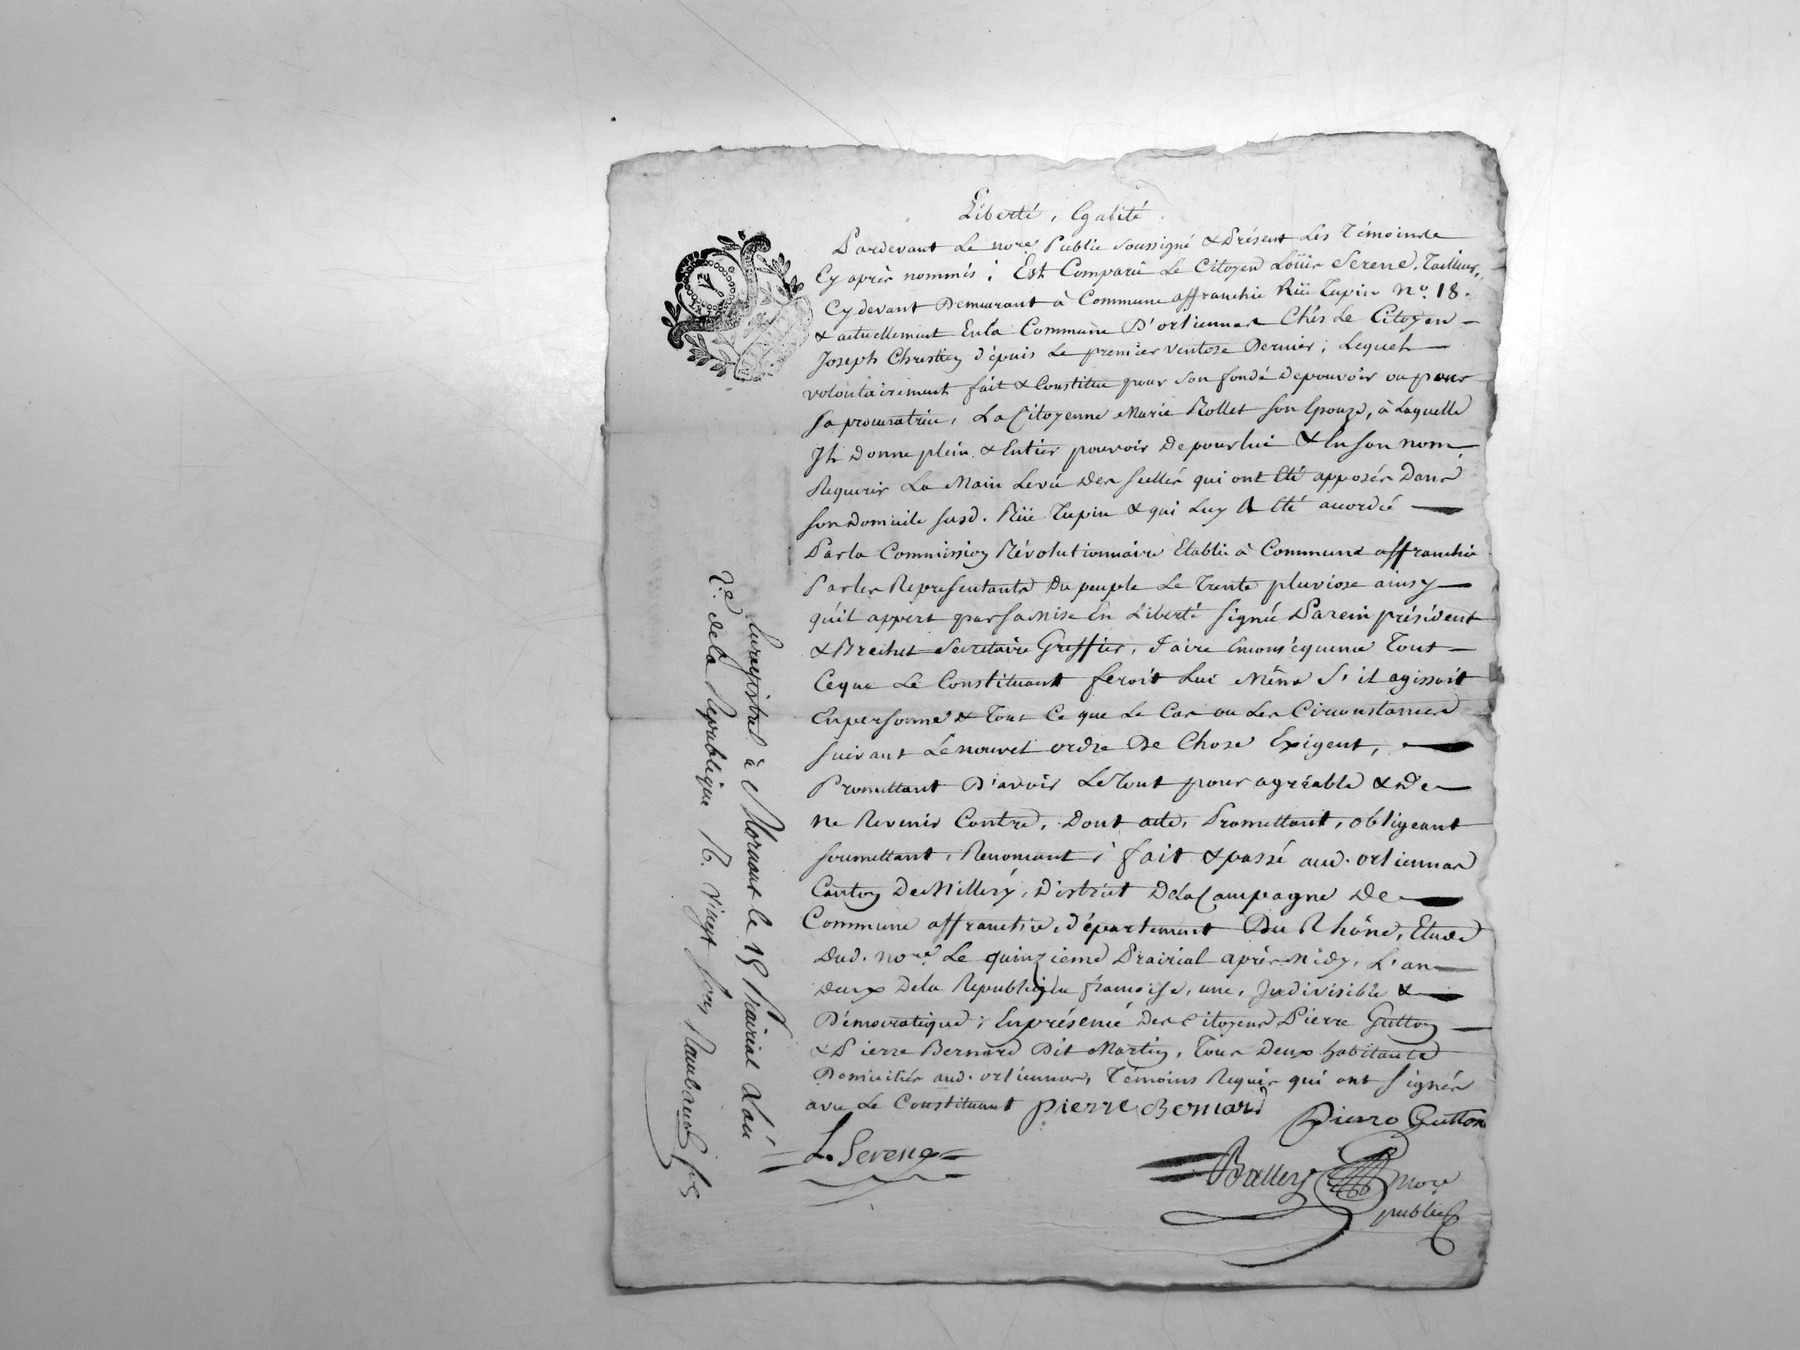 Liberté, Egalité
Pardevant Le nore. Public soussigné & Présent Les Témoins
Cy après nommés; Est Comparu Le Citoyen Loüis Serene, Tailleur,
Cy devant Demeurant à Commune affranchie Rüe Tupin no. 18.
& actuellement En la Commune D'orliennas Chés Le Citoyen
Joseph Chrestien dépuis Le premier ventose Dernier; Lequel
volontairement fait & Constitue pour son fondé depouvoir ou pour
sa procuratrice, La Citoyenne Marie Rollet son Epouze, à Laquelle
Il Donne plein & Entier pouvoir De pour lui & En son nom
Requerir La Main Levée Des scellés qui ont Eté apposés Dans
son Domicile susd. Rüe Tupin & qui Luy A Eté accordée
Par la Commission Révolutionnaire Etablie à Commune affranchie
Par les Representants Du peuple Le Trente pluviose ainsy
qu'il appert par sa Mise En Liberté signée Parein président
& Brechet Secretaire Greffier, Faire Enconséquence Tout
Ceque Le Constituant feroit Lui Même S'il agissoit
En personne & Tout Ce que Le Cas ou Les Circonstances
suivant Le nouvel ordre De Chose Exigent,
Promettant D'avoir Le Tout pour agréable & De
ne Revenir Contre, Dont acte, Promettant, obligeant
soumettant, Renonçant; fait & passé aud. orliennas
Canton De Millery, District De La Campagne De
Commune affranchie, département Du Rhône, Etude
Dud. nore. Le quinzieme Prairial après Midy, L'an
Deux De la Republique françoise, une, Indivisible &
Démocratique; En présence Des Citoyens Pierre Gutton
& Pierre Bernard Dit Martin, Tous Deux habitants
Domiciliés aud. orliennas, Témoins Requis qui ont signés
avec Le Constituant pierre Bernard
Pierre Gutton
L. Serene
nore
public
Enregistré à Mornant le 18 Prairial L'an
2e. de la Republique R. vingt sous